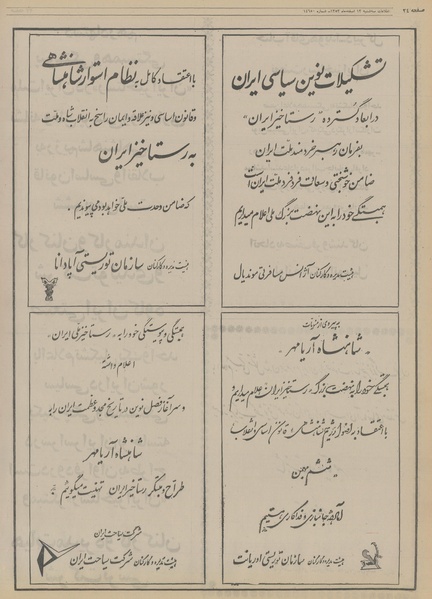 صفحه ۲٤
تشکیلات نوین سیاسی ایران
در ابعاد گسترده «رستاخیز ایران»
بفرمان رهبر خردمند ملت ایران
ضامن خوشبختی و سعادت فرد فرد ملت ایران است
همبستگی خود را باین نهضت بزرگ ملی اعلام میداریم
هیئت مدیره و کارکنان آژانس مسافرتی موندیال
با اعتقاد کامل به نظام استوار شاهنشاهی
و قانون اساسی و نیز علاقه و ایمان راسخ به انقلاب شاه و ملت
به رستاخیز ایران
که ضامن وحدت ملی خواهد بود می پیوندیم.
هیئت مدیره و کارکنان سازمان توریستی آپادانا
به پیروی از منویات
شاهنشاه آریامهر
همبستگی خود را به نهضت بزرگ رستاخیز ایران اعلام میداریم و
با اعتقاد راسخ به رژیم شاهنشاهی قانون اساسی و انقلاب
ششم بهمن
آماده جانبازی و فداکاری هستیم
هیئت مدیره و کارکنان سازمان توریستی اوریانت
همبستگی و پیوستگی خود را به «رستاخیز ملی ایران»
اعلام داشته
و سرآغاز فصل نوین در تاریخ مجد و عظمت ایران را به
شاهنشاه آریامهر
طراح و مبتکر رستاخیز ایران تهنیت میگوئیم
شرکت سیاحت ایران
هیئت مدیره و کارکنان شرکت سیاحت ایران